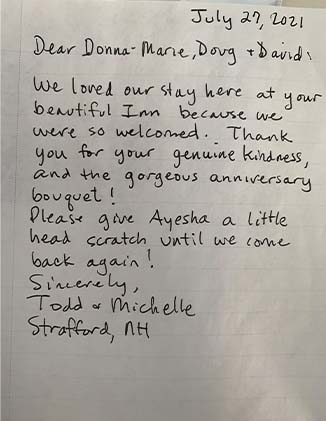 July 27, 2021
Dear Donna-Marie, Doug + David:
We loved our stay here at your
beautiful Inn because we
were so welcomed. Thank
you for your genuine kindness,
and the gorgeous anniversary
bouquet!
Please give Ayesha a little
head scratch until we come
back again!
Sincerely,
Todd & Michelle
Strafford, NH